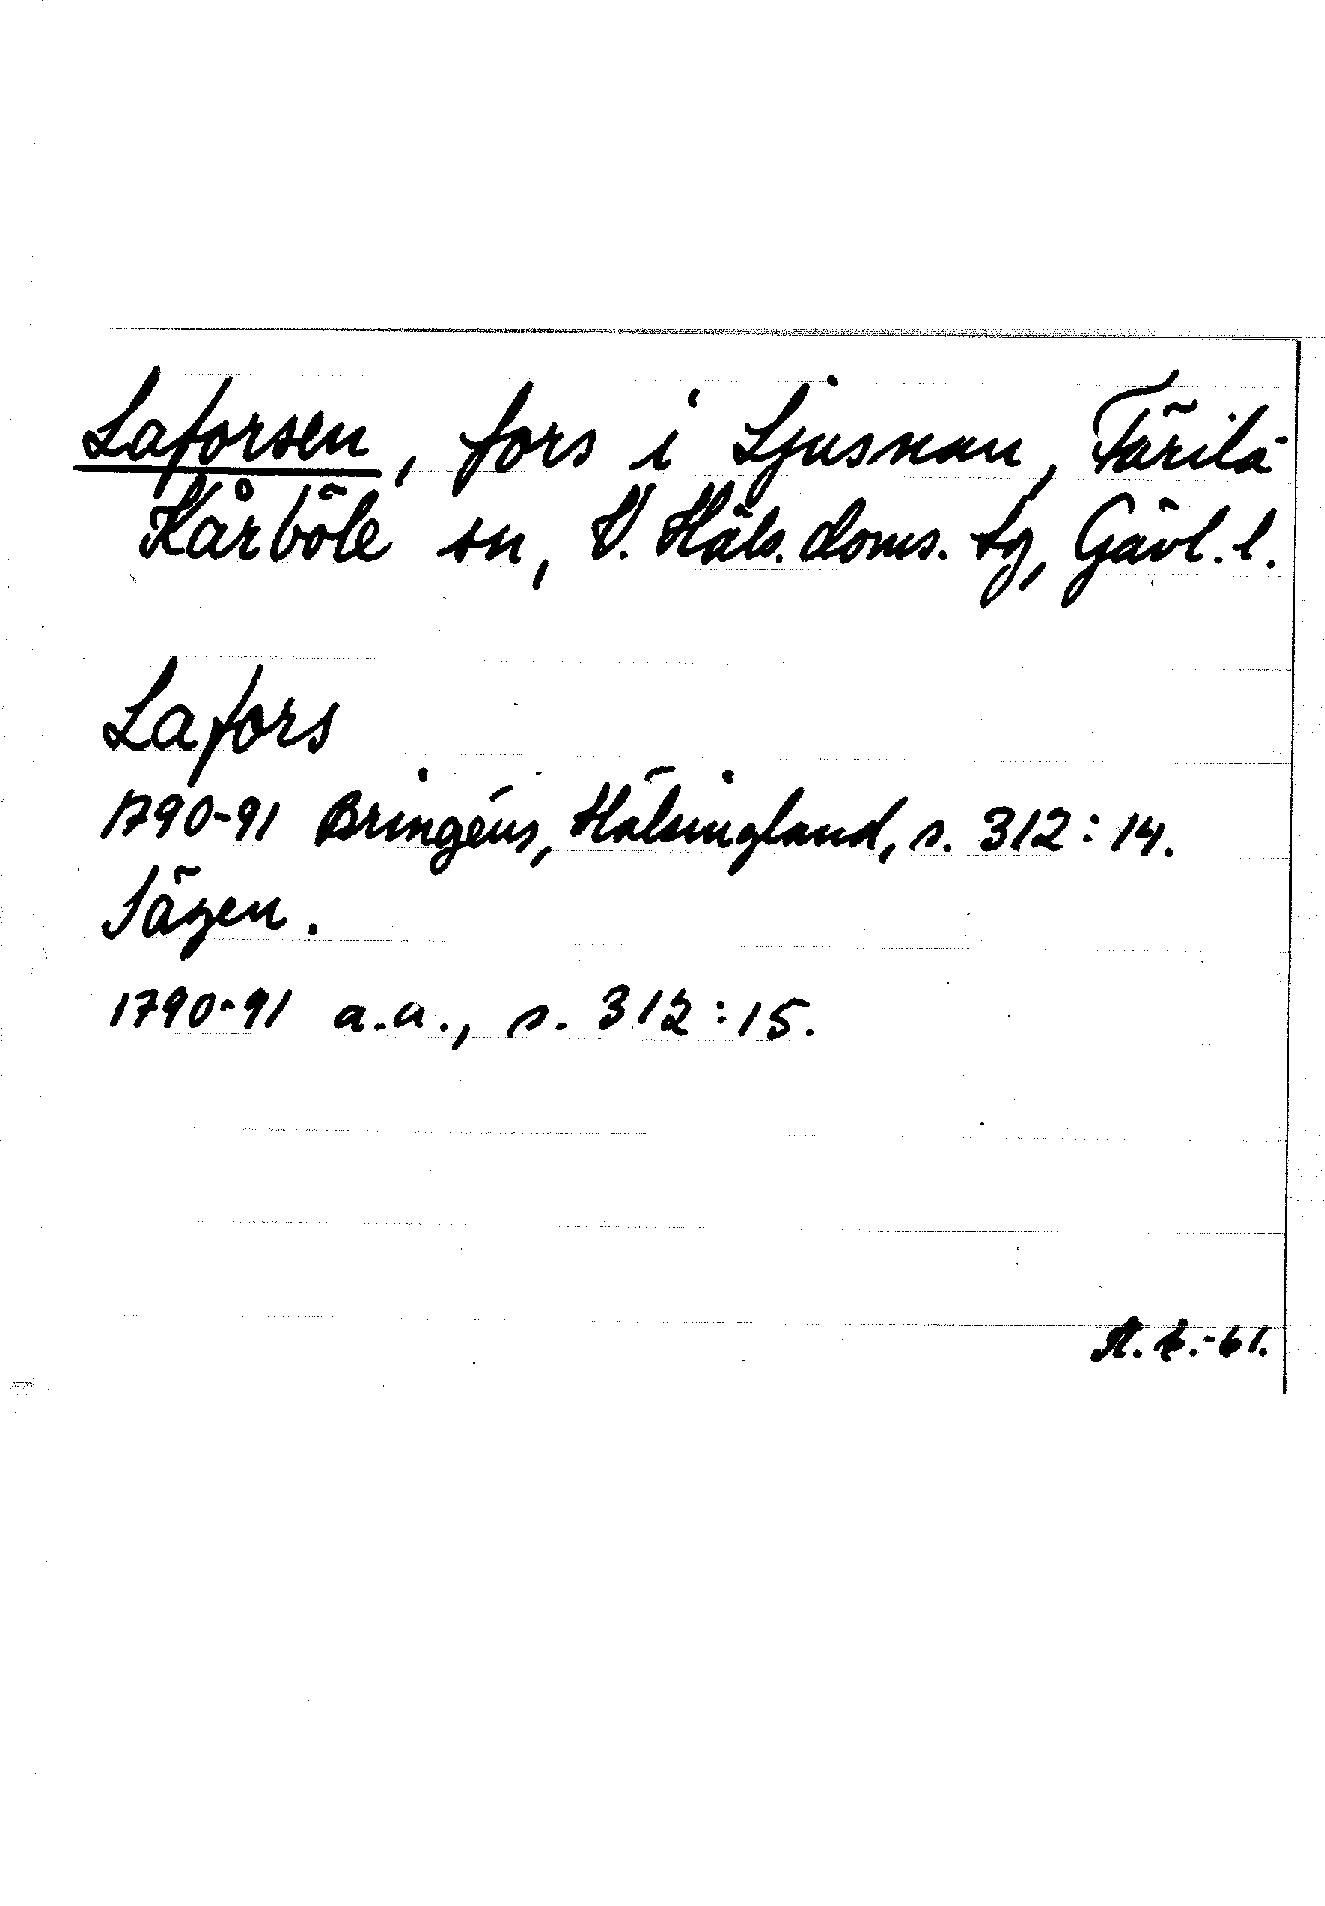 Laforsen, fors i Ljusnan, Färila-
Kårböle sn, V. Häls. doms. tg, Gävl. l.
Lafors
1790-91 Bringéus, Hälsingland, s. 312:14.
Sägen.
1790-91 a.a., s. 312:15.
-61.